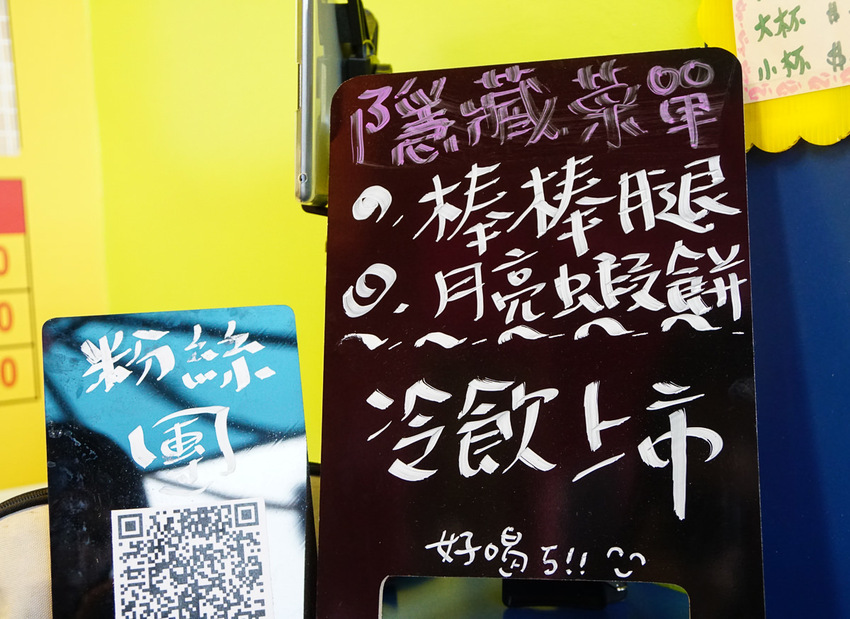 隱藏菜單
棒棒腿
月亮蝦餅
冷飲上市
好喝ㄎ!!
粉絲
團
大杯 $
小杯 $
0
0
0